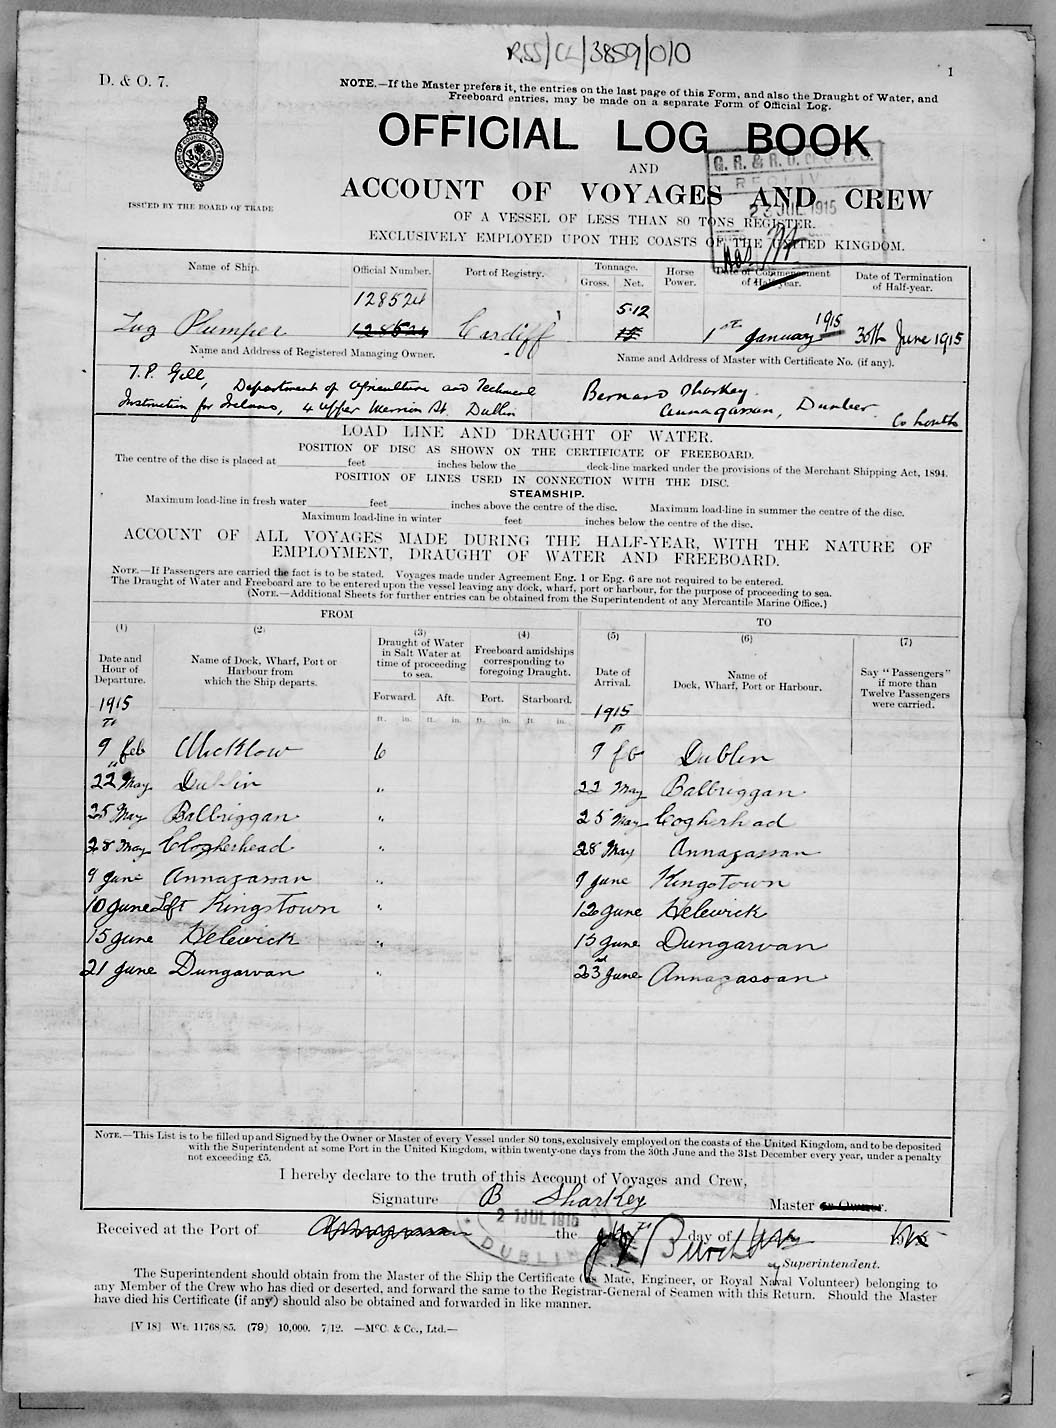 RSS/CL/3859/0/0
1
D. & O. 7.
NOTE.—If the Master prefers it, the entries on the last page of this Form, and also the Draught of Water, and
Freeboard entries, may be made on a separate Form of Official Log.
OFFICIAL LOG BOOK
AND
ACCOUNT OF VOYAGES AND CREW
OF A VESSEL OF LESS THAN 80 TONS REGISTER.
EXCLUSIVELY EMPLOYED UPON THE COASTS OF THE UNITED KINGDOM.
ISSUED BY THE BOARD OF TRADE
23 JUL 1915
Name of Ship. Official Number. Port of Registry. Tonnage. Gross. Net. Horse Power. Date of Commencement of Half-year. Date of Termination of Half-year.
128524 5.12
Lug Plumper 128524 Cardiff 15 1st January 1915 30th June 1915
Name and Address of Registered Managing Owner. Name and Address of Master with Certificate No. (if any).
T. P. Gill, Department of Agriculture and Technical
Instruction for Ireland, 4 Upper Merrion St. Dublin
Bernard Sharkey
Annagassan, Dunleer Co Louth
LOAD LINE AND DRAUGHT OF WATER.
POSITION OF DISC AS SHOWN ON THE CERTIFICATE OF FREEBOARD.
The centre of the disc is placed at feet inches below the deck-line marked under the provisions of the Merchant Shipping Act, 1894.
POSITION OF LINES USED IN CONNECTION WITH THE DISC.
STEAMSHIP.
Maximum load-line in fresh water feet inches above the centre of the disc. Maximum load-line in summer the centre of the disc.
Maximum load-line in winter feet inches below the centre of the disc.
ACCOUNT OF ALL VOYAGES MADE DURING THE HALF-YEAR, WITH THE NATURE OF
EMPLOYMENT, DRAUGHT OF WATER AND FREEBOARD.
NOTE.—If Passengers are carried the fact is to be stated. Voyages made under Agreement Eng. 1 or Eng. 6 are not required to be entered.
The Draught of Water and Freeboard are to be entered upon the vessel leaving any dock, wharf, port or harbour, for the purpose of proceeding to sea.
(NOTE.—Additional Sheets for further entries can be obtained from the Superintendent of any Mercantile Marine Office.)
FROM TO
(1) (2) (3) (4) (5) (6) (7)
Date and Hour of Departure. Name of Dock, Wharf, Port or Harbour from which the Ship departs. Draught of Water in Salt Water at time of proceeding to sea. Freeboard amidships corresponding to foregoing Draught. Date of Arrival. Name of Dock, Wharf, Port or Harbour. Say "Passengers" if more than Twelve Passengers were carried.
Forward. Aft. Port. Starboard.
1915 1915
ft. in. ft. in. ft. in. ft. in.
9th Feb Wicklow 6 9th Feb Dublin
22 May Dublin " 22 May Balbriggan
25 May Balbriggan " 25 May Clogherhead
28 May Clogherhead " 28 May Annagassan
9 June Annagassan " 9 June Kingstown
10 June Left Kingstown " 12 June Helewick
15 June Helewick " 15 June Dungarvan
21 June Dungarvan " 23rd June Annagassan
NOTE.—This List is to be filled up and Signed by the Owner or Master of every Vessel under 80 tons, exclusively employed on the coasts of the United Kingdom, and to be deposited
with the Superintendent at some Port in the United Kingdom, within twenty-one days from the 30th June and the 31st December every year, under a penalty
not exceeding £5.
I hereby declare to the truth of this Account of Voyages and Crew,
Signature B Sharkey Master or Owner.
21 JUL 1915
DUBLIN
Received at the Port of the day of
Superintendent.
The Superintendent should obtain from the Master of the Ship the Certificate (as Mate, Engineer, or Royal Naval Volunteer) belonging to
any Member of the Crew who has died or deserted, and forward the same to the Registrar-General of Seamen with this Return. Should the Master
have died his Certificate (if any) should also be obtained and forwarded in like manner.
[V 18] Wt. 11768/85. (79) 10,000. 7/12. —McC. & Co., Ltd.—